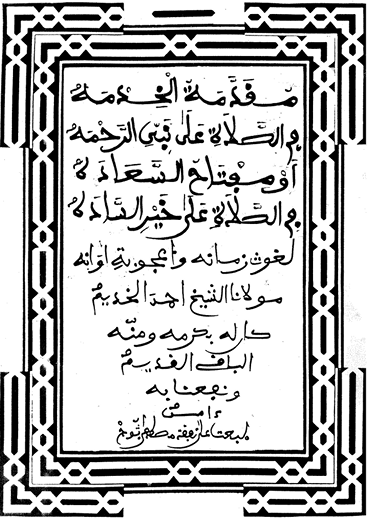 مقدَّمة الخِدمَهْ
في الصَّلَاةِ عَلَى نَبِيِّ الرَّحْمَهْ
أَوْ مِفتَاحُ السَّعَادَهْ
في الصَّلَاةِ عَلَى خَيْرِ السَّادَهْ
لغوث زمانه وأعجوبة أوانه
مولانا الشيخ احمد الخديمُ
كان له بكرمه ومنّه
الباقى القديمُ
ونفعنا به
ءامين
طبعت على نفقة مصطفى